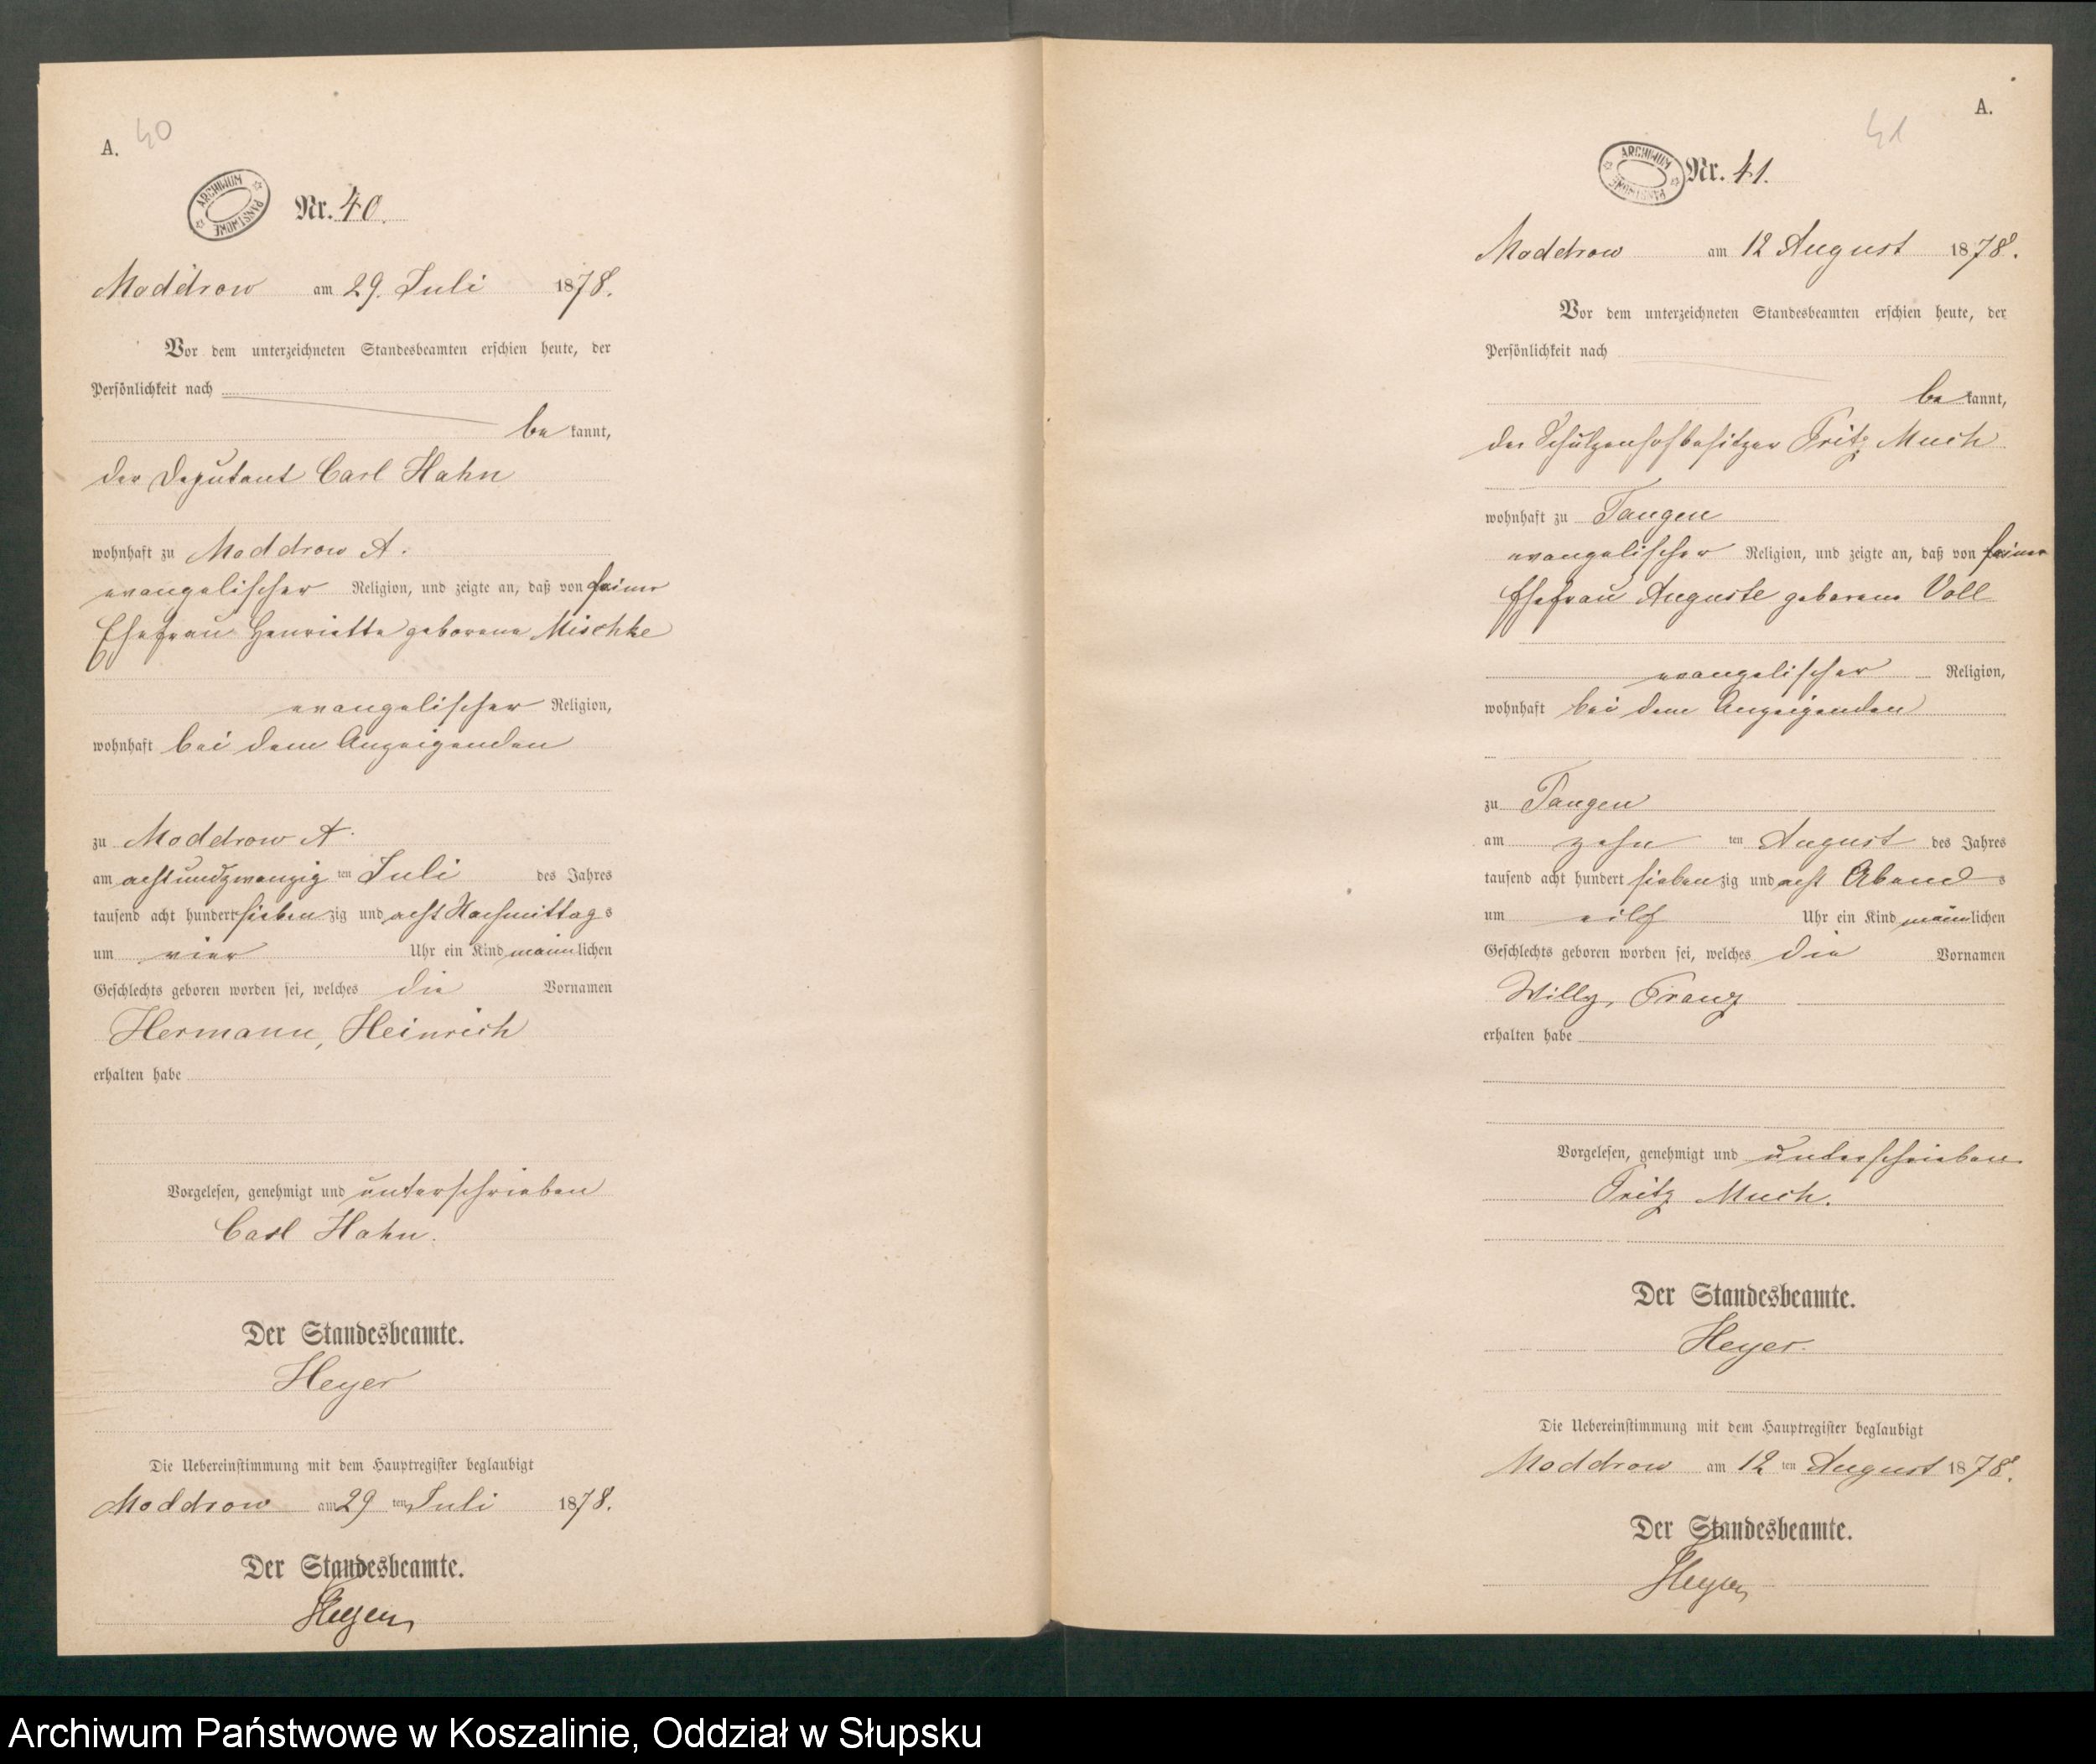 A.
40
ARCHIWUM PAŃSTWOWE
Nr. 40.
Moddrow am 29. Juli 1878.
Vor dem unterzeichneten Standesbeamten erschien heute, der
Persönlichkeit nach
be kannt,
der Deputant Carl Hahn
wohnhaft zu Moddrow A.
evangelischer Religion, und zeigte an, daß von seiner
Ehefrau Henriette geborene Mischke
evangelischer Religion,
wohnhaft bei dem Anzeigenden
zu Moddrow A.
am achtundzwanzig ten Juli des Jahres
tausend acht hundert sieben zig und acht Nachmittag s
um vier Uhr ein Kind männlichen
Geschlechts geboren worden sei, welches die Vornamen
Hermann, Heinrich
erhalten habe
Vorgelesen, genehmigt und unterschrieben
Carl Hahn.
Der Standesbeamte.
Heyer
Die Uebereinstimmung mit dem Hauptregister beglaubigt
Moddrow am 29 ten Juli 1878.
Der Standesbeamte.
Heyer
A.
41
ARCHIWUM PAŃSTWOWE
Nr. 41.
Moddrow am 12 August 1878.
Vor dem unterzeichneten Standesbeamten erschien heute, der
Persönlichkeit nach
be kannt,
der Schulzenhofbesitzer Fritz Much
wohnhaft zu Tangen
evangelischer Religion, und zeigte an, daß von seiner
Ehefrau Auguste geborene Voll
evangelischer Religion,
wohnhaft bei dem Anzeigenden
zu Tangen
am zehn ten August des Jahres
tausend acht hundert sieben zig und acht Abend s
um eilf Uhr ein Kind männlichen
Geschlechts geboren worden sei, welches die Vornamen
Willy, Franz
erhalten habe
Vorgelesen, genehmigt und unterschrieben
Fritz Much.
Der Standesbeamte.
Heyer.
Die Uebereinstimmung mit dem Hauptregister beglaubigt
Moddrow am 12 ten August 1878.
Der Standesbeamte.
Heyer
Archiwum Państwowe w Koszalinie, Oddział w Słupsku